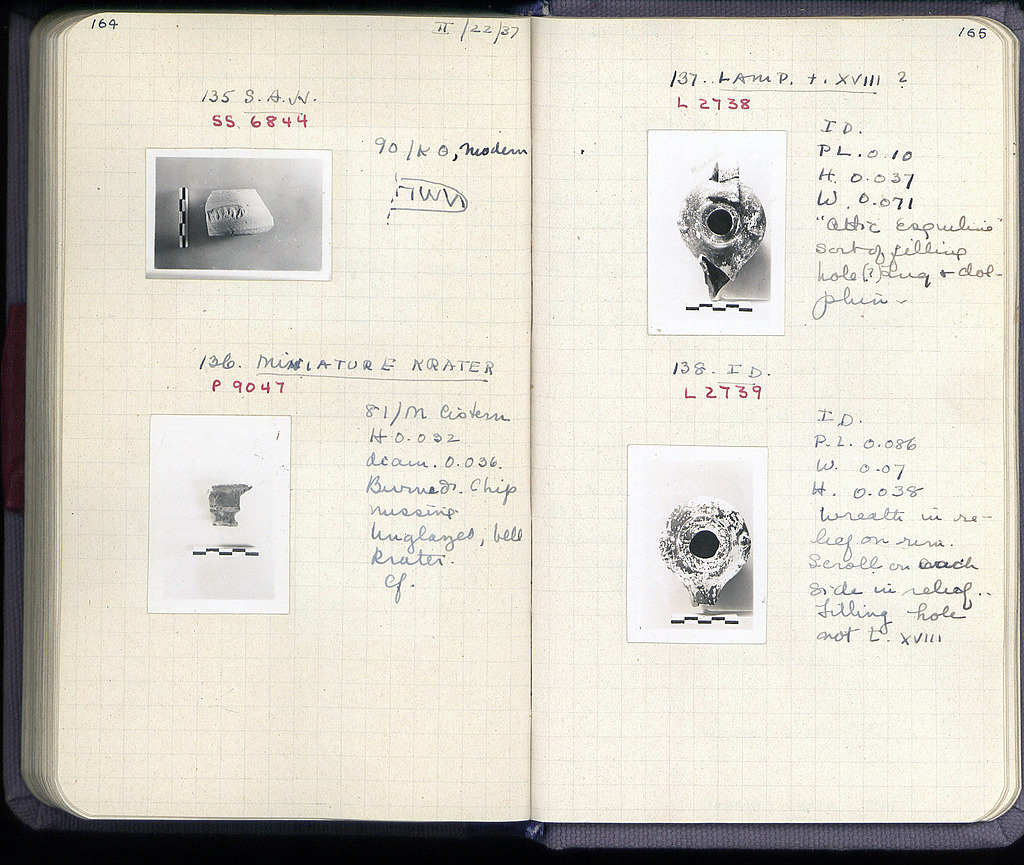 164
II/22/37
135 S.A.H.
SS 6844
90/KO, modern
136. MINIATURE KRATER
P 9047
81/M Cistern
H 0.032
diam. 0.036.
Burned. Chip
missing
Unglazed, bell
krater.
Cf.
165
137. LAMP. t. XVIII ?
L 2738
ID.
P.L. 0.10
H. 0.037
W. 0.071
"Attic Esquiline"
sort of filling
hole (?) Lug + dol-
phin-
138. ID.
L 2739
ID.
P.L. 0.086
W. 0.07
H. 0.038
Wreath in re-
lief on rim.
Scroll on each
side in relief..
Filling hole
not L. XVIII